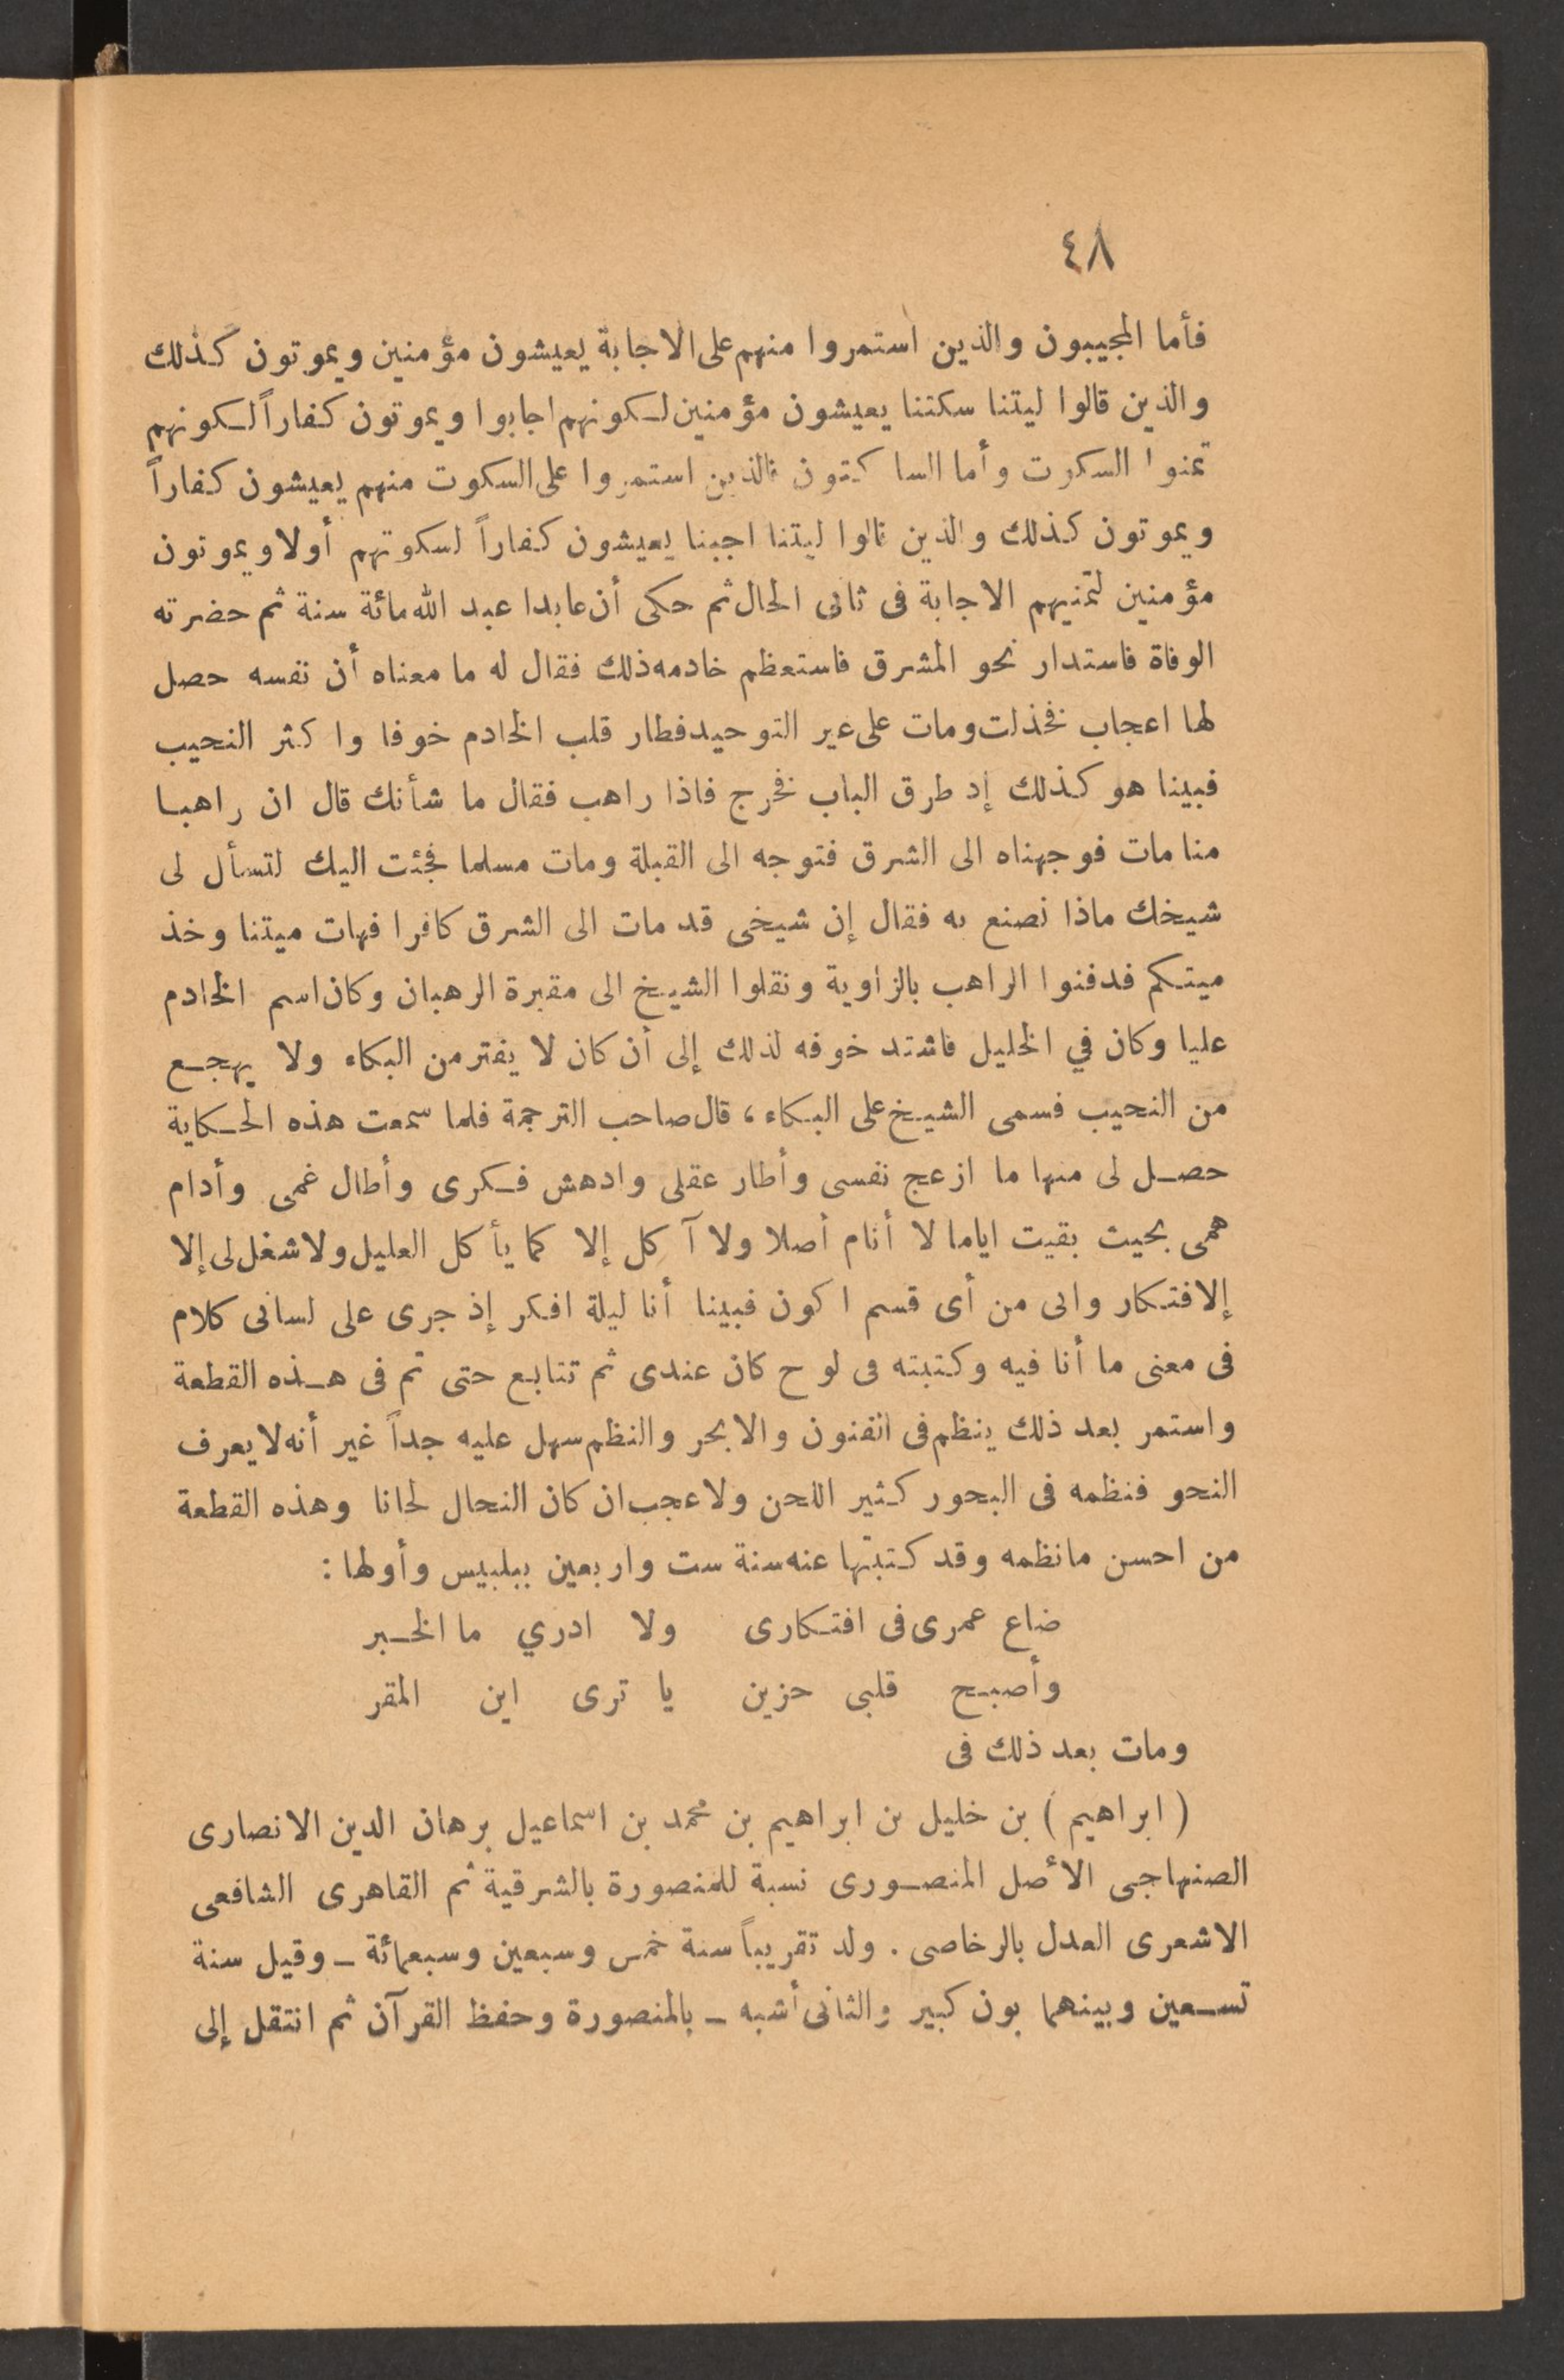 ٤٨
فأما المجيبون والذين استمروا منهم على الاجابة يعيشون مؤمنين ويموتون كذلك
والذين قالوا ليتنا سكتنا يعيشون مؤمنين لكونهم اجابوا ويموتون كفاراً لكونهم
تمنوا السكوت وأما الساكتون فالذين استمروا على السكوت منهم يعيشون كفاراً
ويموتون كذلك والذين قالوا ليتنا اجبنا يعيشون كفاراً لسكوتهم أولا ويموتون
مؤمنين لتمنيهم الاجابة فى ثانى الحال ثم حكى أن عابدا عبد الله مائة سنة ثم حضرته
الوفاة فاستدار نحو المشرق فاستعظم خادمه ذلك فقال له ما معناه أن نفسه حصل
لها اعجاب فخذلت ومات على غير التوحيد فطار قلب الخادم خوفا واكثر النحيب
فبينا هو كذلك إذ طرق الباب فخرج فاذا راهب فقال ما شأنك قال ان راهبا
منا مات فوجهناه الى الشرق فتوجه الى القبلة ومات مسلما فجئت اليك لتسأل لى
شيخك ماذا نصنع به فقال إن شيخى قد مات الى الشرق كافرا فهات ميتنا وخذ
ميتكم فدفنوا الراهب بالزاوية ونقلوا الشيخ الى مقبرة الرهبان وكان اسم الخادم
عليا وكان في الخليل فاشتد خوفه لذلك إلى أن كان لا يفتر من البكاء ولا يهجع
من النحيب فسمى الشيخ على البكاء ، قال صاحب الترجمة فلما سمعت هذه الحكاية
حصل لى منها ما ازعج نفسى وأطار عقلى وادهش فكرى وأطال غمى وأدام
همى بحيث بقيت اياما لا أنام أصلا ولا آكل إلا كما يأكل العليل ولا شغل لى إلا
إلافتكار وانى من أى قسم اكون فبينا أنا ليلة افكر إذ جرى على لسانى كلام
فى معنى ما أنا فيه وكتبته فى لوح كان عندى ثم تتابع حتى تم فى هذه القطعة
واستمر بعد ذلك ينظم فى الفنون والابحر والنظم سهل عليه جداً غير أنه لا يعرف
النحو فنظمه فى البحور كثير اللحن ولا عجب ان كان النحال لحانا وهذه القطعة
من احسن ما نظمه وقد كتبتها عنه سنة ست واربعين ببلبيس وأولها :
ضاع عمرى فى افتكارى ولا ادري ما الخبر
وأصبح قلبى حزين يا ترى اين المقر
ومات بعد ذلك فى
( ابراهيم ) بن خليل بن ابراهيم بن محمد بن اسماعيل برهان الدين الانصارى
الصنهاجى الأصل المنصورى نسبة للمنصورة بالشرقية ثم القاهرى الشافعى
الاشعرى العدل بالرخاصى . ولد تقريباً سنة خمس وسبعين وسبعمائة ــ وقيل سنة
تسعين وبينهما بون كبير والثانى أشبه ــ بالمنصورة وحفظ القرآن ثم انتقل إلى